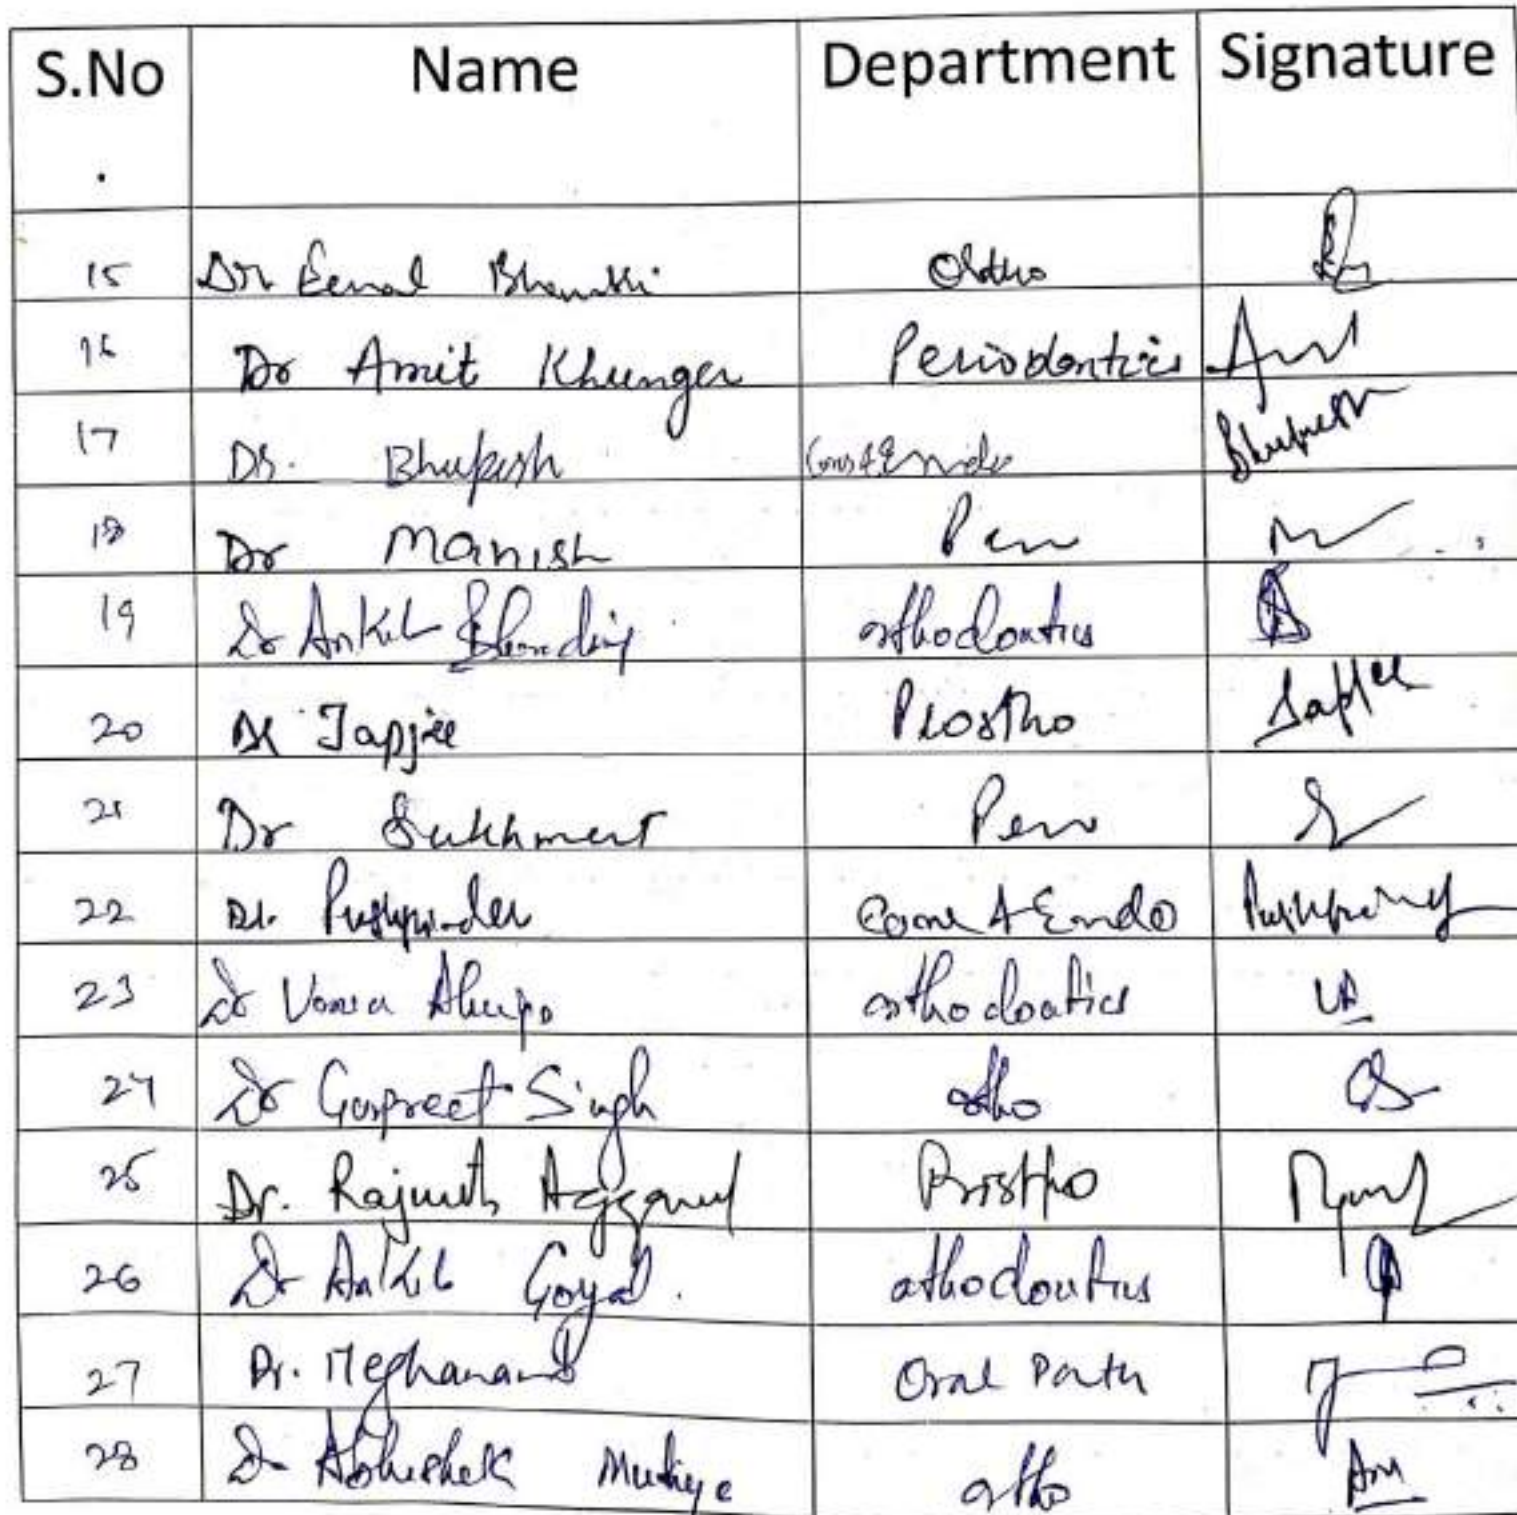 S.No Name Department Signature
.
15 Dr Eenal Ortho
16 Dr Amit Khunger Periodontics
17 Dr. Bhupesh Cons & Endo Bhupesh
18 Dr Manish Perio
19 Dr Ankit orthodontics
20 Dr Japjee Prostho Japjee
21 Dr Sukhmeet Perio
22 Dr. Pushpinder Cons & Endo
23 Dr Ahuja orthodontics
24 Dr Gurpreet Singh ortho GS
25 Dr. Aggarwal Prostho
26 Dr Ankit Goyal. orthodontics
27 Dr. Meghanand Oral Path
28 Dr Abhishek ortho